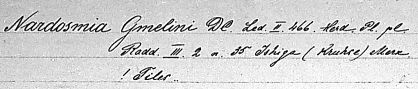 Nardosmia Gmelini DC. Led. II. 466. Herd. Pl. pl.
Radd. III. 2 n. 35 Ishiga (Kruhse) Merk.
! Tiles.